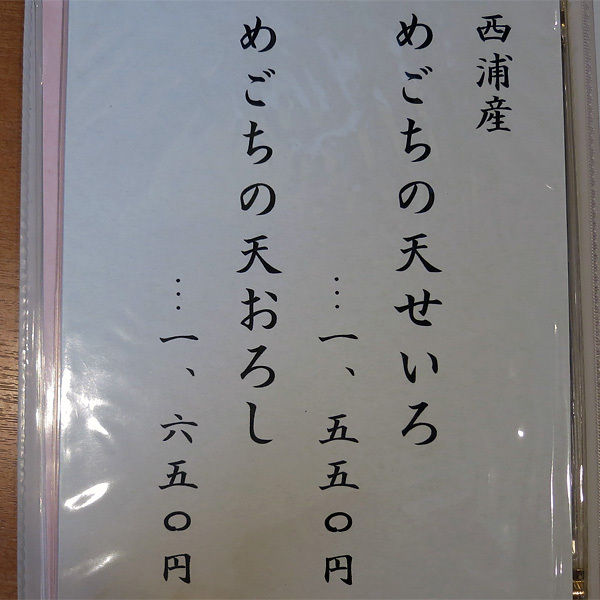 西浦産
めごちの天せいろ
…一、五五〇円
めごちの天おろし
…一、六五〇円